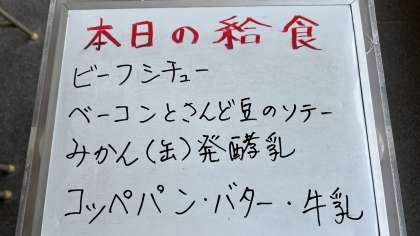 本日の給食
ビーフシチュー
ベーコンとさんど豆のソテー
みかん(缶)発酵乳
コッペパン・バター・牛乳